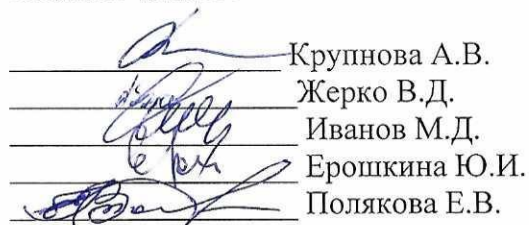 Крупнова А.В.
Жерко В.Д.
Иванов М.Д.
Ерошкина Ю.И.
Полякова Е.В.